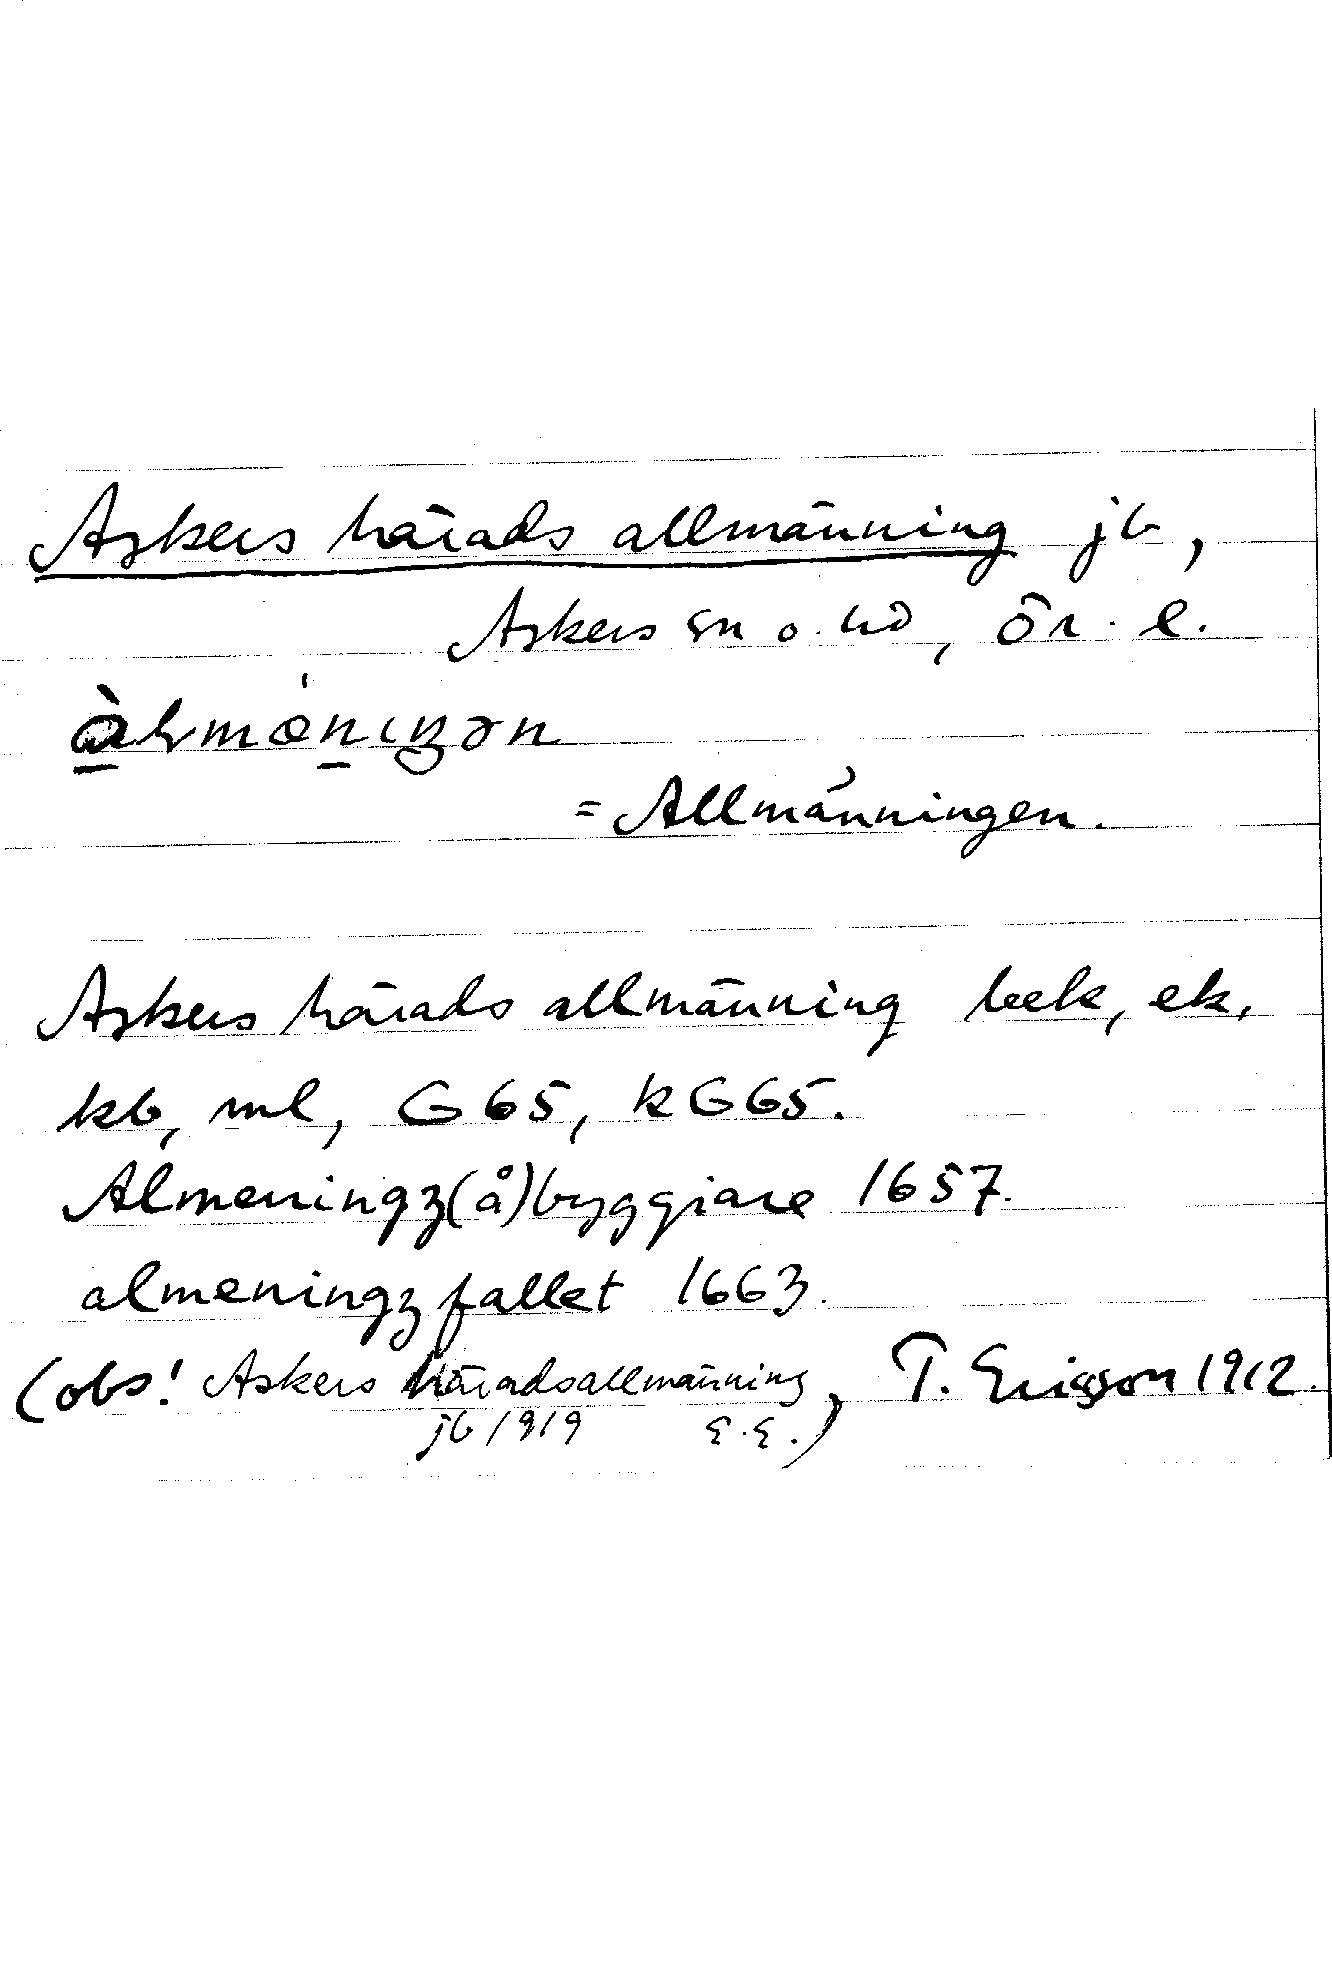 Askers härads allmänning jb,
Askers sn o. hd, Ör. l.
= Allmänningen.
Askers härads allmänning bek, ek,
kb, ml, G65, KG65.
Almeningz(å)byggiare 1657.
almeningz fallet 1663.
(obs! Askers häradsallmänning, T. Ericsson 1912.
jb 1919 E.E.)